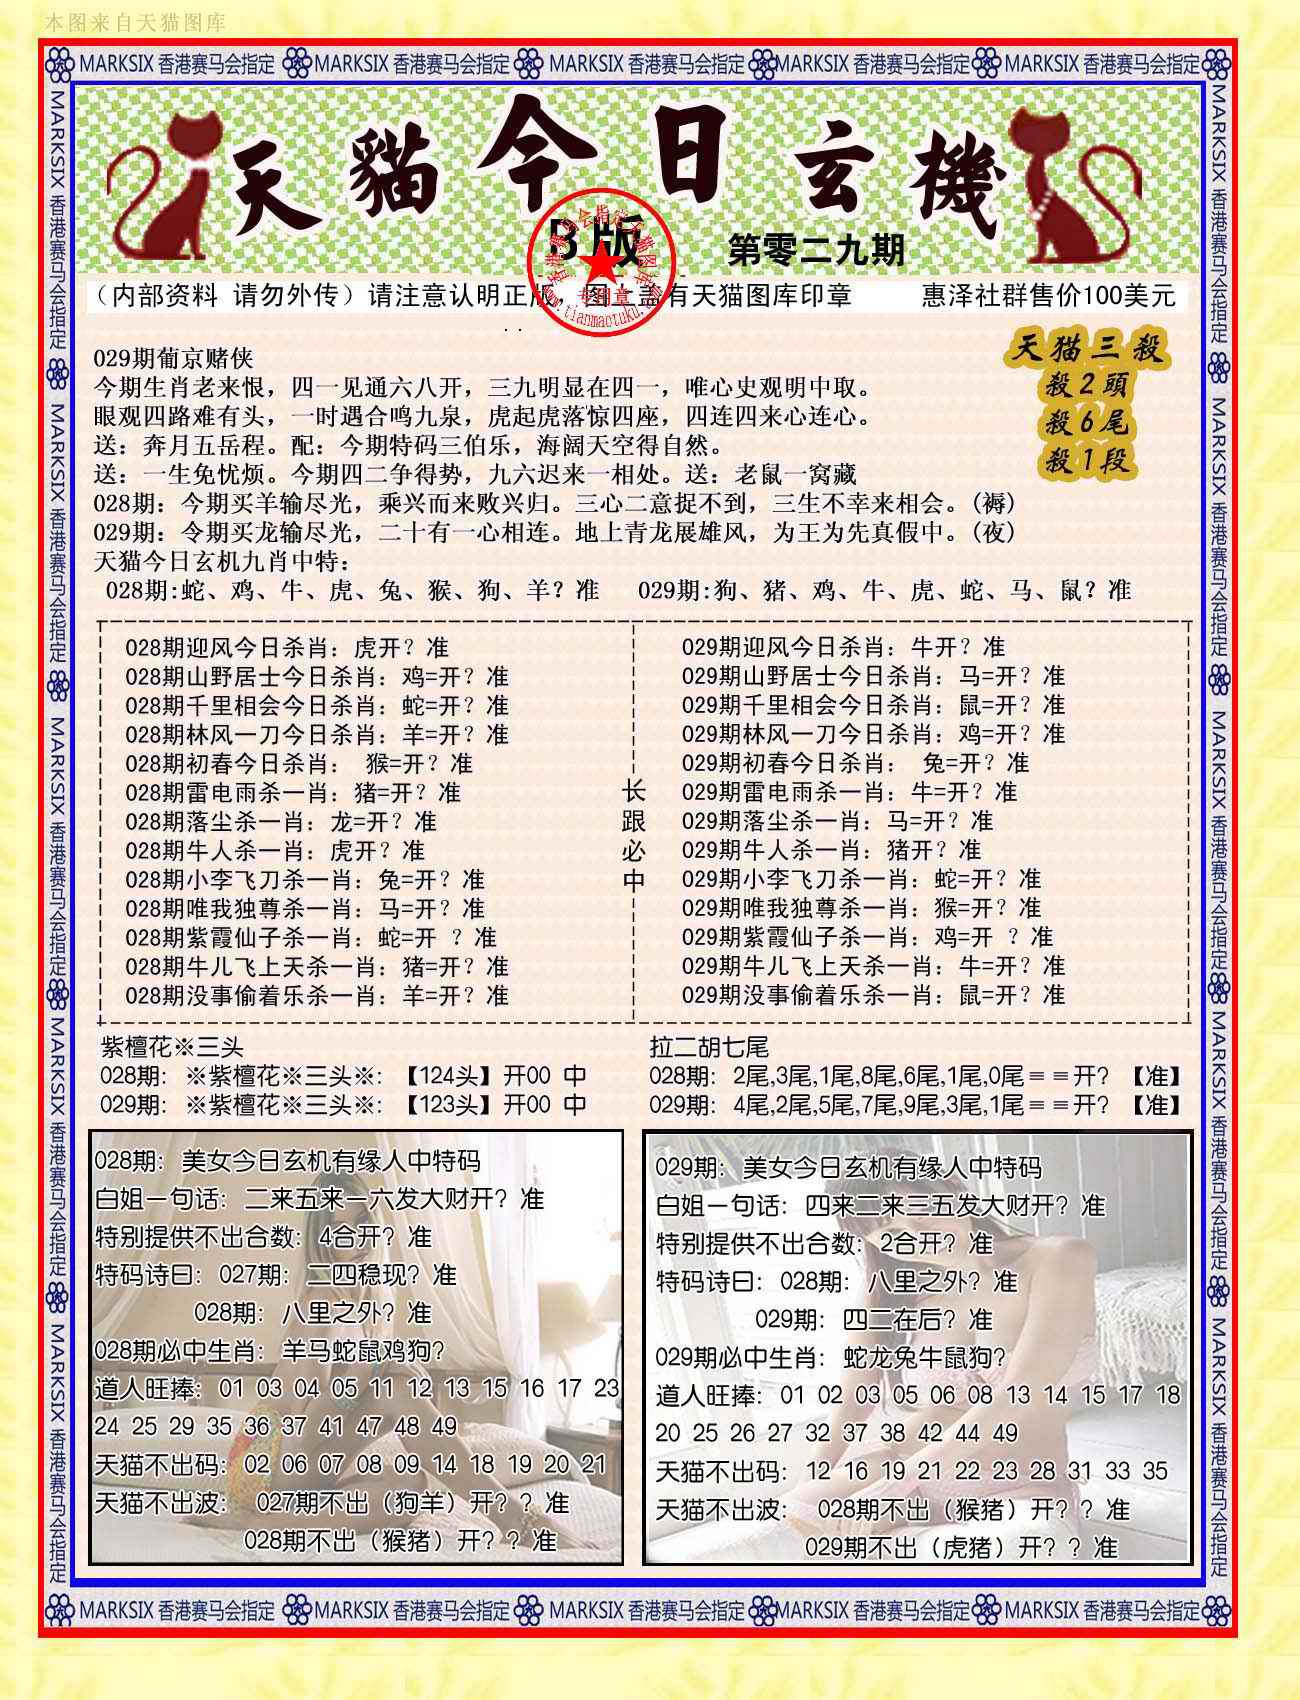 本图来自天猫图库
MARKSIX 香港赛马会指定 MARKSIX 香港赛马会指定 MARKSIX 香港赛马会指定 MARKSIX 香港赛马会指定 MARKSIX 香港赛马会指定
天貓今日玄機
B版
第零二九期
专用章
www.tianmaotuku.
（内部资料 请勿外传）请注意认明正版，图上盖有天猫图库印章 惠泽社群售价100美元
天猫三殺
殺2頭
殺6尾
殺1段
029期葡京赌侠
今期生肖老来恨，四一见通六八开，三九明显在四一，唯心史观明中取。
眼观四路难有头，一时遇合鸣九泉，虎起虎落惊四座，四连四来心连心。
送：奔月五岳程。配：今期特码三伯乐，海阔天空得自然。
送：一生免忧烦。今期四二争得势，九六迟来一相处。送：老鼠一窝藏
028期：今期买羊输尽光，乘兴而来败兴归。三心二意捉不到，三生不幸来相会。(褥)
029期：令期买龙输尽光，二十有一心相连。地上青龙展雄风，为王为先真假中。(夜)
天猫今日玄机九肖中特：
028期:蛇、鸡、牛、虎、兔、猴、狗、羊？准 029期:狗、猪、鸡、牛、虎、蛇、马、鼠？准
028期迎风今日杀肖：虎开？准
028期山野居士今日杀肖：鸡=开？准
028期千里相会今日杀肖：蛇=开？准
028期林风一刀今日杀肖：羊=开？准
028期初春今日杀肖： 猴=开？准
028期雷电雨杀一肖：猪=开？准
028期落尘杀一肖：龙=开？准
028期牛人杀一肖：虎开？准
028期小李飞刀杀一肖：兔=开？准
028期唯我独尊杀一肖：马=开？准
028期紫霞仙子杀一肖：蛇=开 ？准
028期牛儿飞上天杀一肖：猪=开？准
028期没事偷着乐杀一肖：羊=开？准
长
跟
必
中
029期迎风今日杀肖：牛开？准
029期山野居士今日杀肖：马=开？准
029期千里相会今日杀肖：鼠=开？准
029期林风一刀今日杀肖：鸡=开？准
029期初春今日杀肖： 兔=开？准
029期雷电雨杀一肖：牛=开？准
029期落尘杀一肖：马=开？准
029期牛人杀一肖：猪开？准
029期小李飞刀杀一肖：蛇=开？准
029期唯我独尊杀一肖：猴=开？准
029期紫霞仙子杀一肖：鸡=开 ？准
029期牛儿飞上天杀一肖：牛=开？准
029期没事偷着乐杀一肖：鼠=开？准
紫檀花※三头
028期：※紫檀花※三头※：【124头】开00 中
029期：※紫檀花※三头※：【123头】开00 中
拉二胡七尾
028期：2尾,3尾,1尾,8尾,6尾,1尾,0尾＝＝开？【准】
029期：4尾,2尾,5尾,7尾,9尾,3尾,1尾＝＝开？【准】
028期：美女今日玄机有缘人中特码
白姐一句话：二来五来一六发大财开？准
特别提供不出合数：4合开？准
特码诗曰：027期：二四稳现？准
028期：八里之外？准
028期必中生肖：羊马蛇鼠鸡狗？
道人旺捧：01 03 04 05 11 12 13 15 16 17 23
24 25 29 35 36 37 41 47 48 49
天猫不出码：02 06 07 08 09 14 18 19 20 21
天猫不出波： 027期不出（狗羊）开？？准
028期不出（猴猪）开？？准
029期：美女今日玄机有缘人中特码
白姐一句话：四来二来三五发大财开？准
特别提供不出合数：2合开？准
特码诗曰：028期：八里之外？准
029期：四二在后？准
029期必中生肖：蛇龙兔牛鼠狗？
道人旺捧：01 02 03 05 06 08 13 14 15 17 18
20 25 26 27 32 37 38 42 44 49
天猫不出码：12 16 19 21 22 23 28 31 33 35
天猫不出波： 028期不出（猴猪）开？？准
029期不出（虎猪）开？？准
MARKSIX 香港赛马会指定 MARKSIX 香港赛马会指定 MARKSIX 香港赛马会指定 MARKSIX 香港赛马会指定 MARKSIX 香港赛马会指定
MARKSIX 香港赛马会指定 MARKSIX 香港赛马会指定 MARKSIX 香港赛马会指定 MARKSIX 香港赛马会指定 MARKSIX 香港赛马会指定
MARKSIX 香港赛马会指定 MARKSIX 香港赛马会指定 MARKSIX 香港赛马会指定 MARKSIX 香港赛马会指定 MARKSIX 香港赛马会指定